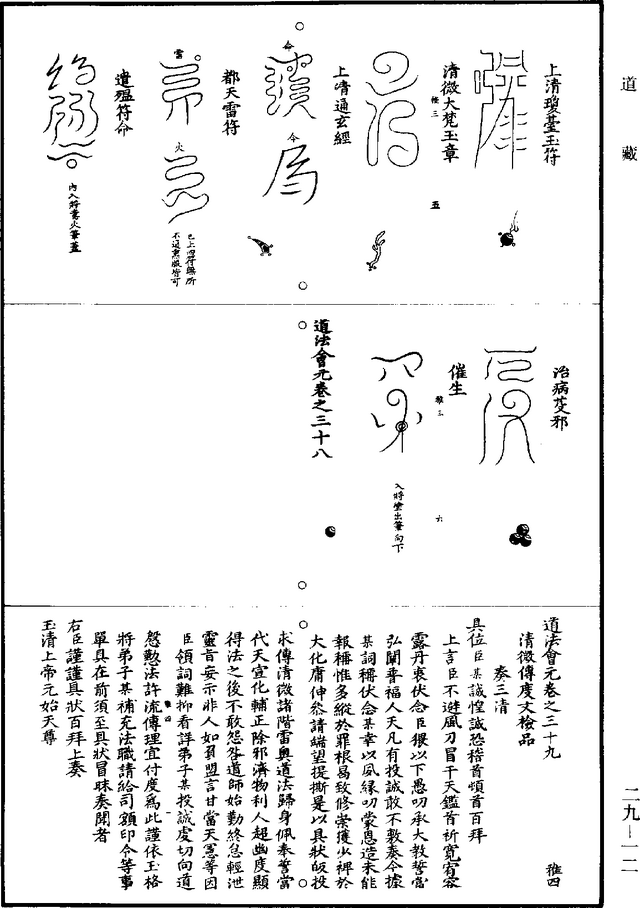 道 藏
上清瓊臺玉符
清微大梵玉章
雅三
五
上清通玄經
令
令
都天雷符
雷
火
已上四符無所
不返 皆可
遣瘟符命
內入將書火筆蓋
治病芟邪
催生
雅三
六
入將塗出筆向下
道法會元卷之三十八
道法會元卷之三十九
雅四
清微傳度文檢品
奏三清
具位臣某誠惶誠恐稽首頓首百拜
上言臣不避風刀冒干天鑑首祈寬宥容
露丹衷伏念臣猥以下愚叨承大教誓當
弘闡普福人天凡有投誠敢不敷奏今據
某詞稱伏念某幸以夙緣叨蒙恩造未能
報稱惟多縱於罪根曷致修崇獲少裨於
大化庸伸叅請端望提撕是以具狀皈投
求傳清微諸階雷奧道法歸身佩奉誓當
代天宣化輔正除邪濟物利人超幽度顯
得法之後不敢怨咎道師始勤終怠輕泄
靈音妄示非人如負盟言甘當天憲等因
臣領詞難抑看詳弟子某投誠虔切向道
慇懃法許流傳理宜付度爲此謹依玉格
將弟子某補充法職請給司額印令等事
單具在前須至具狀冒昧奏聞者
右臣謹謹具狀百拜上奏
玉清上帝元始天尊
二九—一二